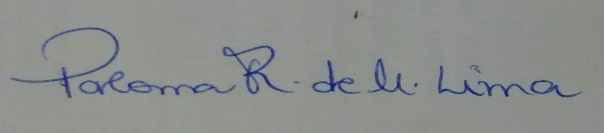 Paloma R. de M. Lima